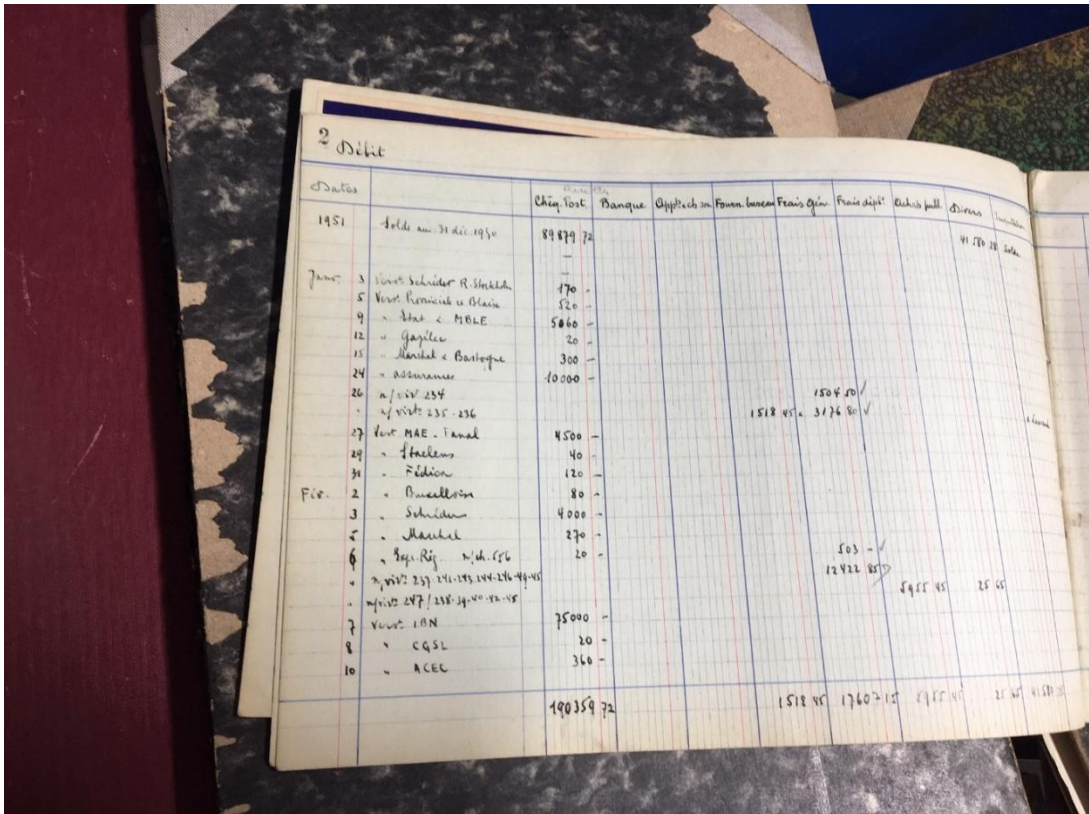 2 Débit
Dates Chèq. Post. Banque Fourn. bureau Frais Gén. Frais dépl. Achats publ. Divers
1951 Solde au 31 déc. 1950 89879 72 41580 28 Solde
Janv. 3 Virt Schröder R. Stockholm 170 -
5 Verst Provinciale Blaise 520 -
9 " Stat & MBLE 5060 -
12 " Gazelec 20 -
15 " Marchal & Bastogne 300 -
24 " assurances 10000 -
26 n/ virt 234 1504 50 ✓
" n/ virts 235-236 1518 45 3176 80 ✓
27 Verst MAE - 4500 -
29 " Staelens 40 -
31 " 120 -
Fév. 2 " 80 -
3 " Schröder 4000 -
5 " Marchal 270 -
6 " n/ ch. 556 20 - 503 - ✓
" n/ virts 237-241-243-244-246-49-45 12422 85
" n/ virts 247/238-39-40-42-48 5955 45 25 65
7 Verst IBN 75000 -
8 " CGSL 20 -
10 " ACEC 360 -
190359 72 1518 45 17607 15 5955 45 25 65